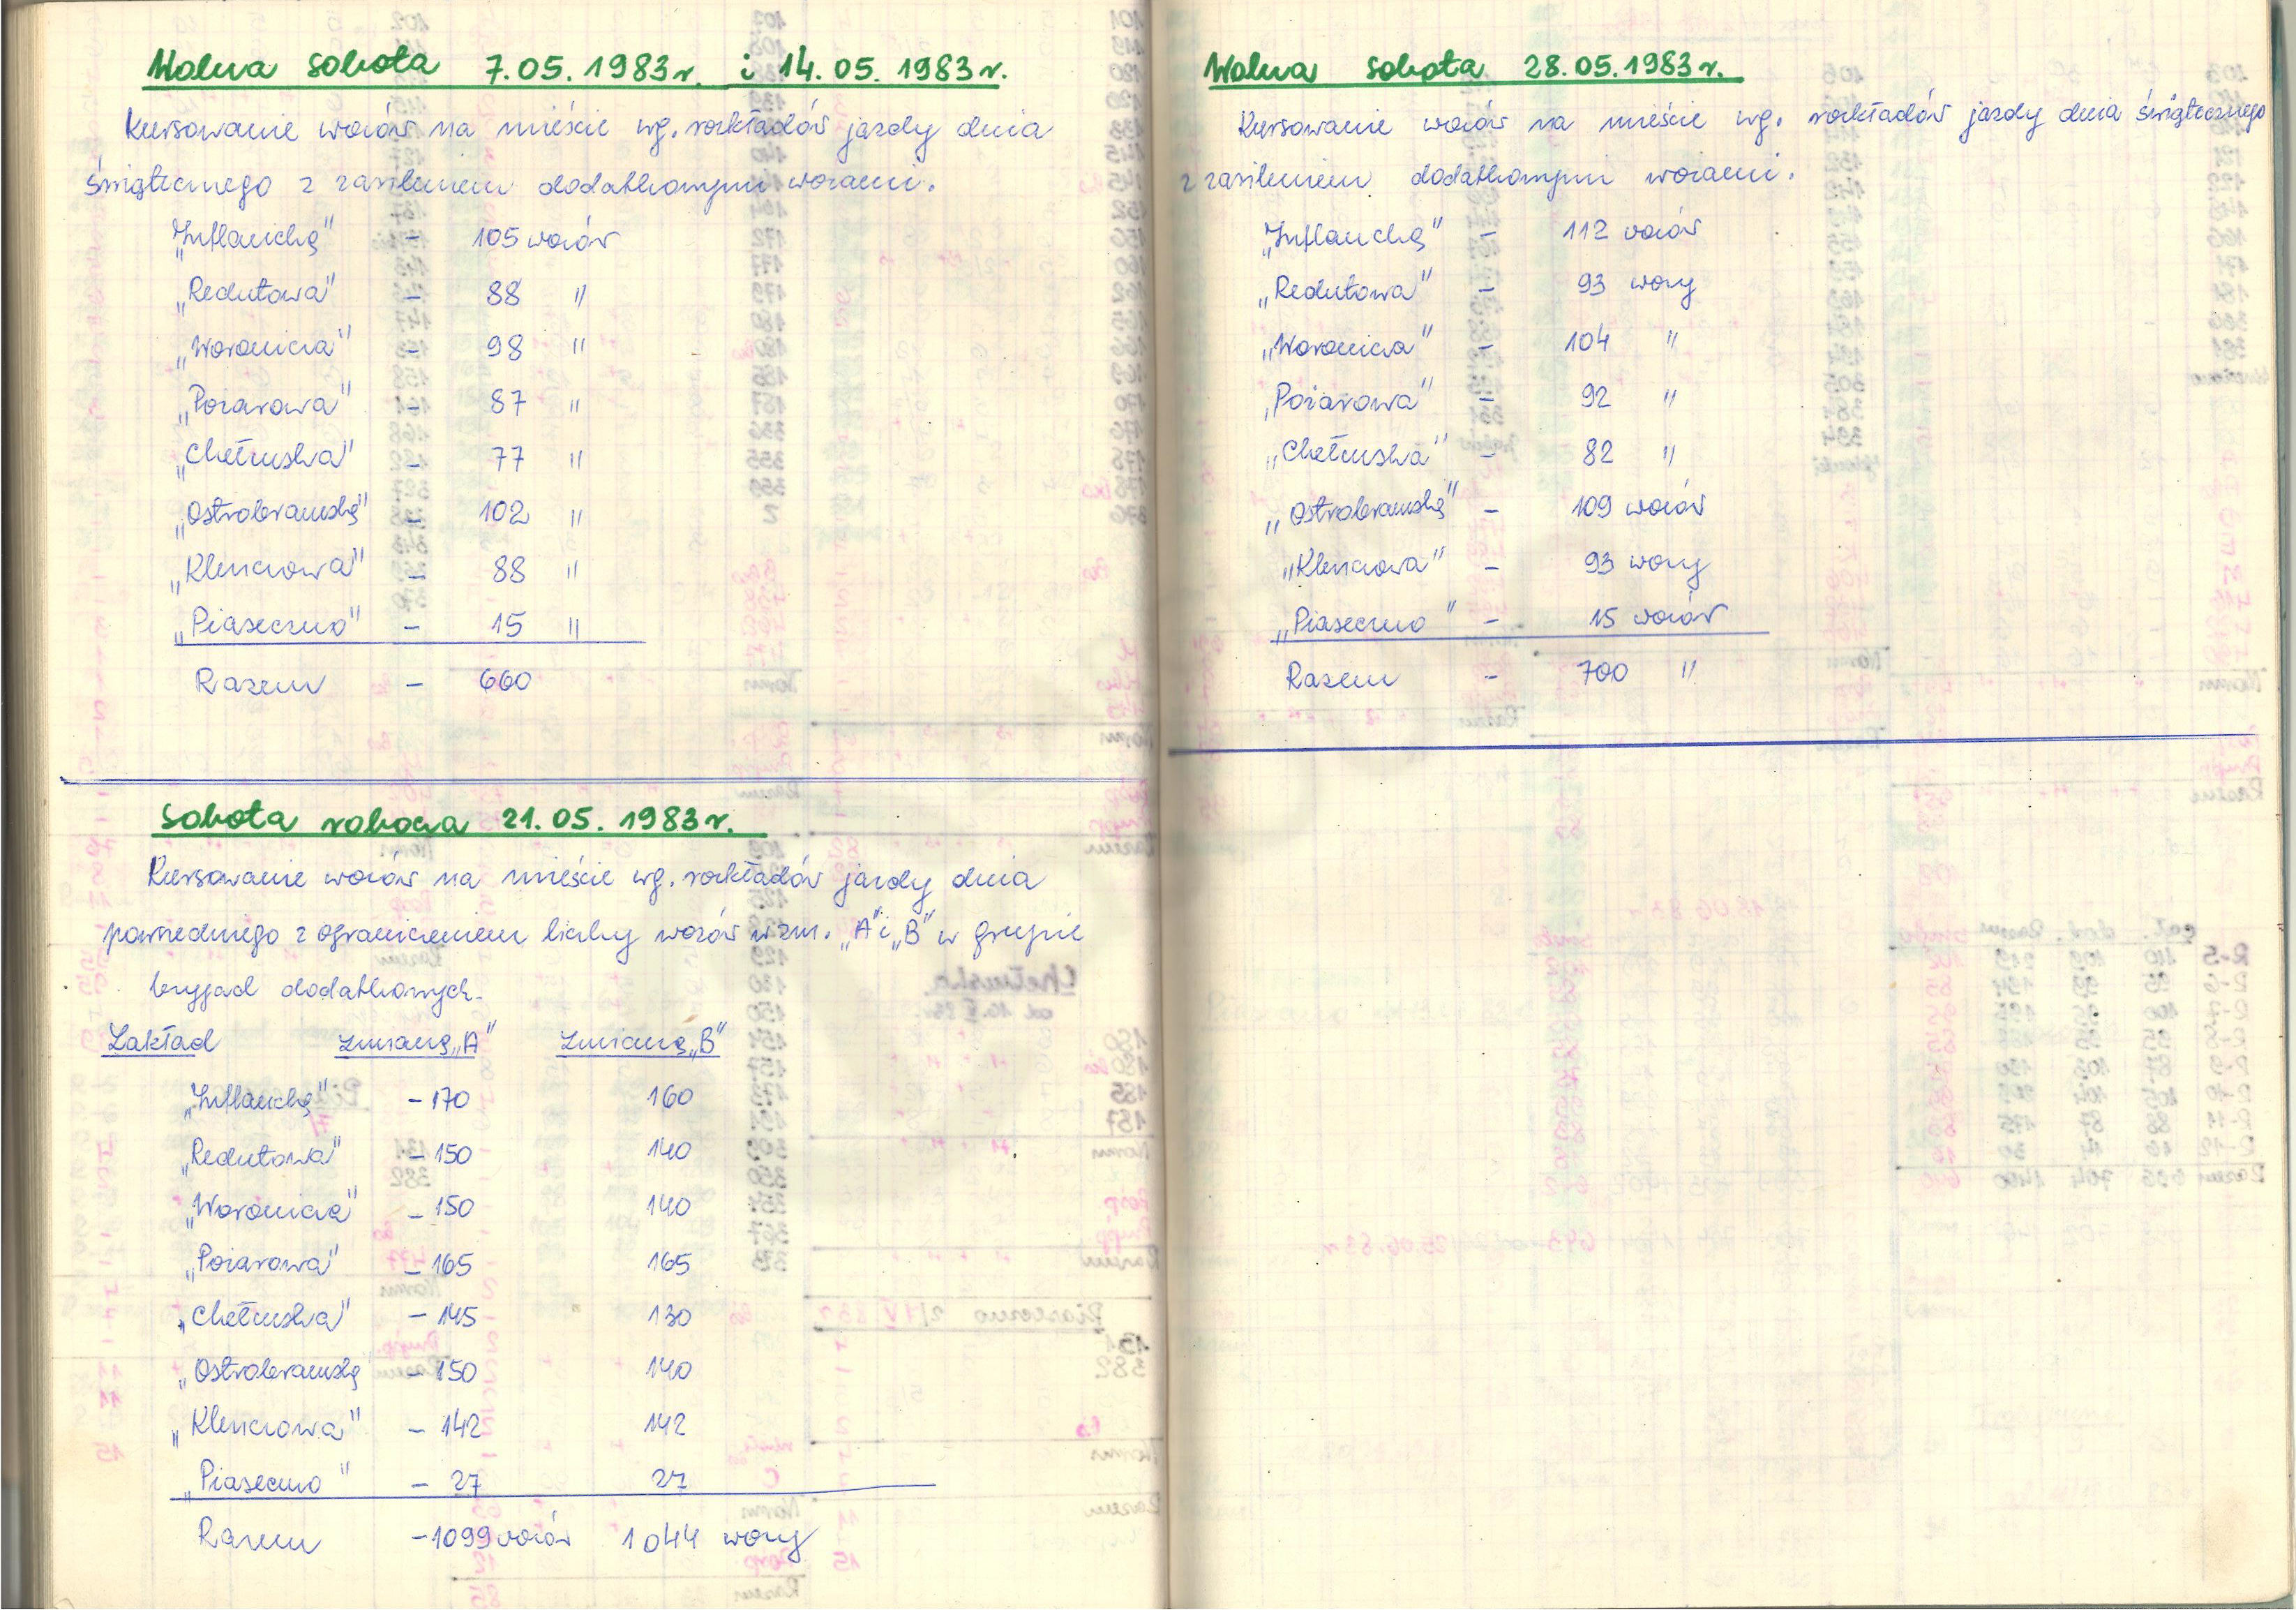 Wolna sobota 7.05.1983r. i 14.05.1983r.
Kursowanie wozów na mieście wg. rozkładów jazdy dnia
świątecznego z zasileniem dodatkowymi wozami.
„Inflancka" - 105 wozów
„Redutowa" - 88 "
„Woronicza" - 98 "
„Pożarowa" - 87 "
„Chełmska" - 77 "
„Ostrobramska" - 102 "
„Kleszczowa" - 88 "
„Piaseczno" - 15 "
Razem - 660
Sobota robocza 21.05.1983r.
Kursowanie wozów na mieście wg. rozkładów jazdy dnia
powszedniego z ograniczeniem liczby wozów w zm. „A" i „B" w grupie
brygad dodatkowych.
Zakład zmiana „A" zmiana „B"
„Inflancka" - 170 160
„Redutowa" - 150 140
„Woronicza" - 150 140
„Pożarowa" - 165 165
„Chełmska" - 145 130
„Ostrobramska - 150 140
„Kleszczowa" - 142 142
„Piaseczno" - 27 27
Razem - 1099 wozów 1044 wozy
Wolna sobota 28.05.1983r.
Kursowanie wozów na mieście wg. rozkładów jazdy dnia świątecznego
z zasileniem dodatkowymi wozami.
„Inflancka" - 112 wozów
„Redutowa" - 93 wozy
„Woronicza" - 104 "
„Pożarowa" - 92 "
„Chełmska" - 82 "
„Ostrobramska" - 109 wozów
„Kleszczowa" - 93 wozy
„Piaseczno" - 15 wozów
Razem - 700 "